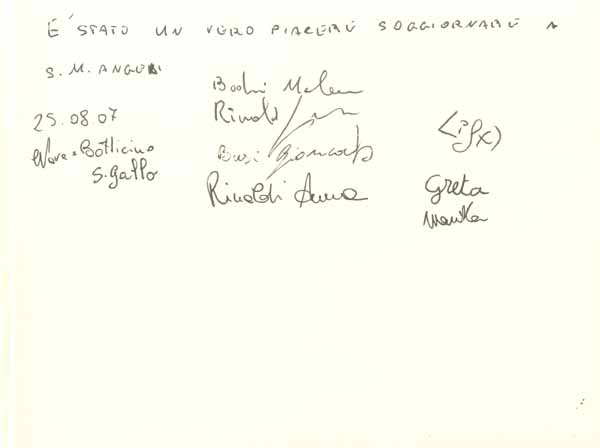 È STATO UN VERO PIACERE SOGGIORNARE A
S. M. ANGELI
25.08.07
Nave - Botticino
S. Gallo
Rinaldi
Busi Giancarlo
Rinaldi Anna
Greta
Marika